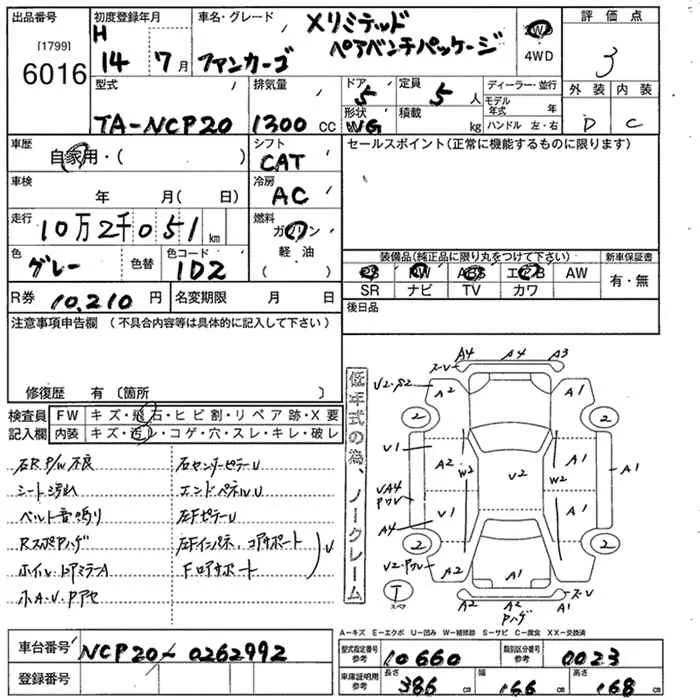 出品番号
[1799]
6016
初度登録年月
H
14 7月
車名・グレード
ファンカーゴ
Xリミテッド
ペアベンチパッケージ
2WD
4WD
評価点
3
外装 内装
D C
型式
TA-NCP20
排気量
1300 cc
ドア
5
形状
WG
定員
5 人
積載
kg
ディーラー・並行
モデル年式 年
ハンドル 左・右
車歴
自家用・( )
シフト
CAT
車検
年 月( 日)
冷房
AC
走行
10万2千051 km
燃料
ガソリン
軽油
( )
色
グレー
色替
色コード
1D2
R券 10,210 円
名変期限 月 日
セールスポイント(正常に機能するものに限ります)
装備品(純正品に限り丸をつけて下さい)
PS PW ABS エアB AW
SR ナビ TV カワ
新車保証書
有・無
後日品
注意事項申告欄 (不具合内容等は具体的に記入して下さい)
修復歴 有 〔箇所 〕
検査員
記入欄
FW キズ・飛石・ヒビ割・リペア跡・X要
内装 キズ・汚レ・コゲ・穴・スレ・キレ・破レ
右R P/W不良
シート汚れ
ベルト音鳴り
RスポPハゲ
ホイル・ドアミラーA
小A・V・Pアセ
右センターピラーU
エンドパネルU
左FピラーU
左Fインパネ、コアサポート
Fロアサポート
U
低年式の為、ノークレーム
A4 A4 A3
ス-V
V2-S2
A2
A1
2
2
V1
A2
W2
V2
W2
A1
A1
VA4
PワレV
V1
A1
A4
2
2
V2-Pワレ
A2
A1
A1
T
スペア
A2 A2 A1
ス-V
Pハゲ
A-キズ E-エクボ U-凹み W-補修跡 S-サビ C-腐食 XX-交換済
車台番号 NCP20-0262992
登録番号
型式指定番号
参考
10660
類別区分番号
参考
0023
車庫証明用
参考
長さ
386 cm
幅
166 cm
高さ
168 cm